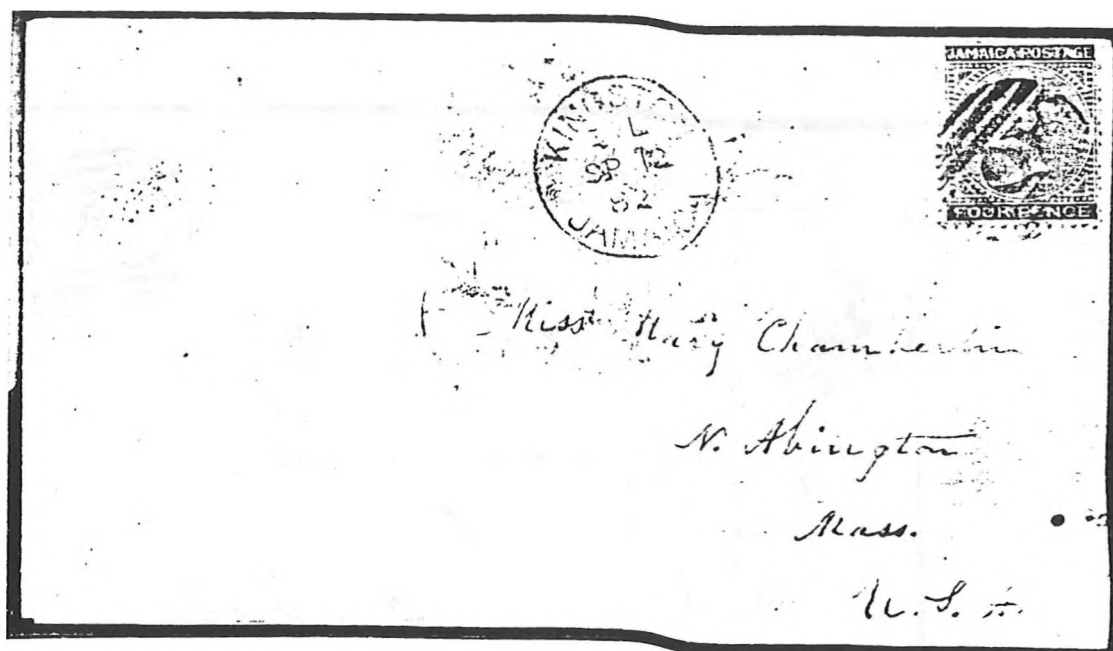 JAMAICA POSTAGE
FOUR PENCE
KINGSTON
SP
82
JAMAICA
Miss Mary Chamberlin
N. Abington
Mass.
U.S.A.